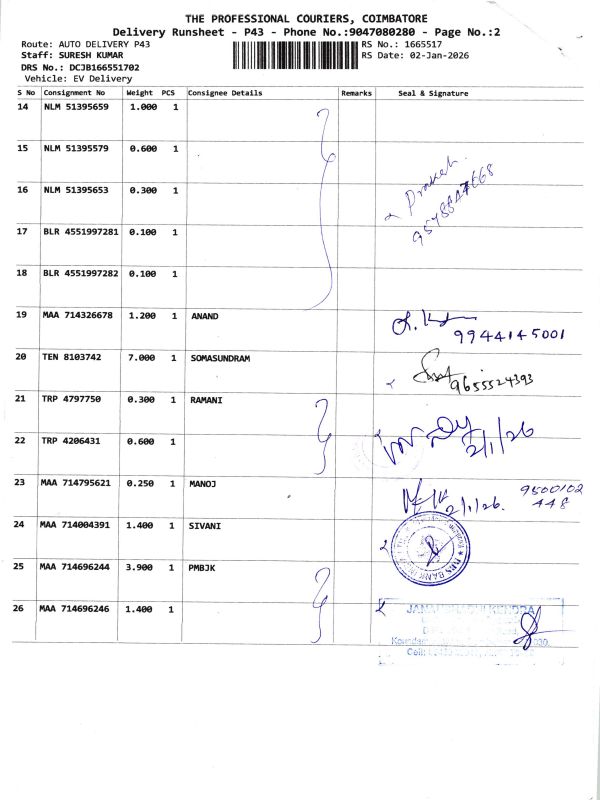 THE PROFESSIONAL COURIERS, COIMBATORE
Delivery Runsheet - P43 - Phone No.:9047080280 - Page No.:2
Route: AUTO DELIVERY P43
RS No.: 1665517
Staff: SURESH KUMAR
RS Date: 02-Jan-2026
DRS No.: DCJB166551702
Vehicle: EV Delivery
S No Consignment No Weight PCS Consignee Details Remarks Seal & Signature
14 NLM 51395659 1.000 1
15 NLM 51395579 0.600 1
16 NLM 51395653 0.300 1
17 BLR 4551997281 0.100 1
18 BLR 4551997282 0.100 1
19 MAA 714326678 1.200 1 ANAND
9944145001
20 TEN 8103742 7.000 1 SOMASUNDRAM
9655524393
21 TRP 4797750 0.300 1 RAMANI
22 TRP 4206431 0.600 1
2/1/26
23 MAA 714795621 0.250 1 MANOJ
2/1/26.
9500102
448
24 MAA 714004391 1.400 1 SIVANI
25 MAA 714696244 3.900 1 PMBJK
26 MAA 714696246 1.400 1